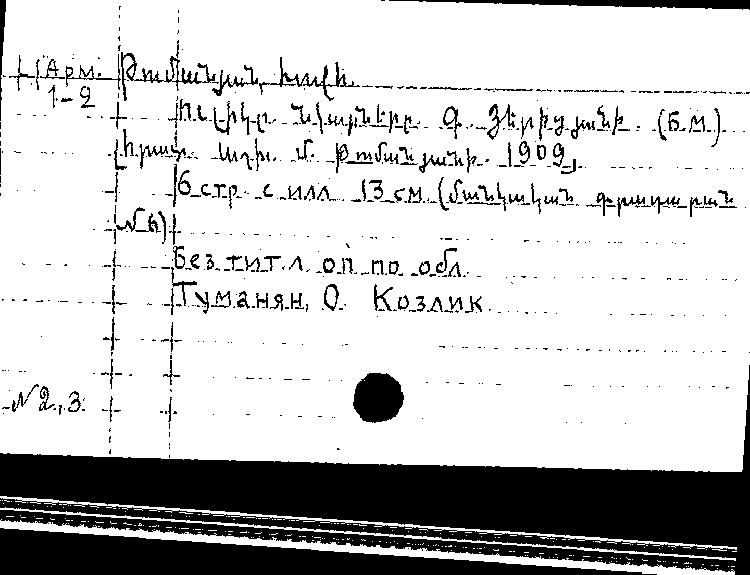 Арм. Թումանյան, Հովհ.
1-2
Ուլիկը. Նկարները Գ. Երիցյանի. (Б.М.)
հրատ. Աղխ. Մ. Թումանյանի. 1909,
16 стр. с илл. 13 см. (Մանկական գրադարան
№ 6)
Без тит. л. оп. по обл.
Туманян, О. Козлик.
№ 2, 3.